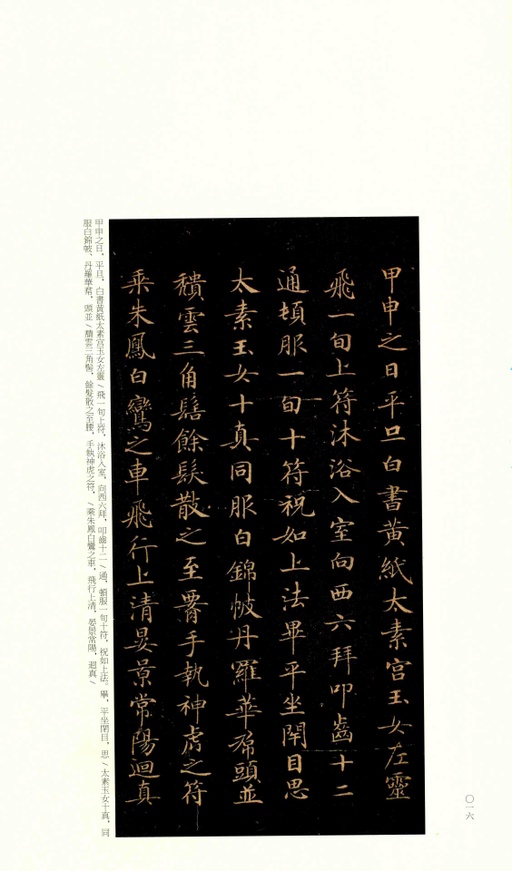 甲申之日平旦白書黃紙太素宮玉女左靈
飛一旬上符沐浴入室向西六拜叩齒十二
通頓服一旬十符祝如上法畢平坐閉目思
太素玉女十真同服白錦帔丹羅華帬頭並
積雲三角髻餘髮散之至腰手執神虎之符
乘朱鳳白鸞之車飛行上清晏景常陽迴真
甲申之日，平旦，白書黃紙太素宮玉女左靈／飛一旬上符，沐浴入室，向西六拜，叩齒十二／通，頓服一旬十符，祝如上法。畢，平坐閉目，思／太素玉女十真，同
服白錦帔，丹羅華帬，頭並／積雲三角髻，餘髮散之至腰，手執神虎之符，／乘朱鳳白鸞之車，飛行上清，晏景常陽，迴真／
〇一六